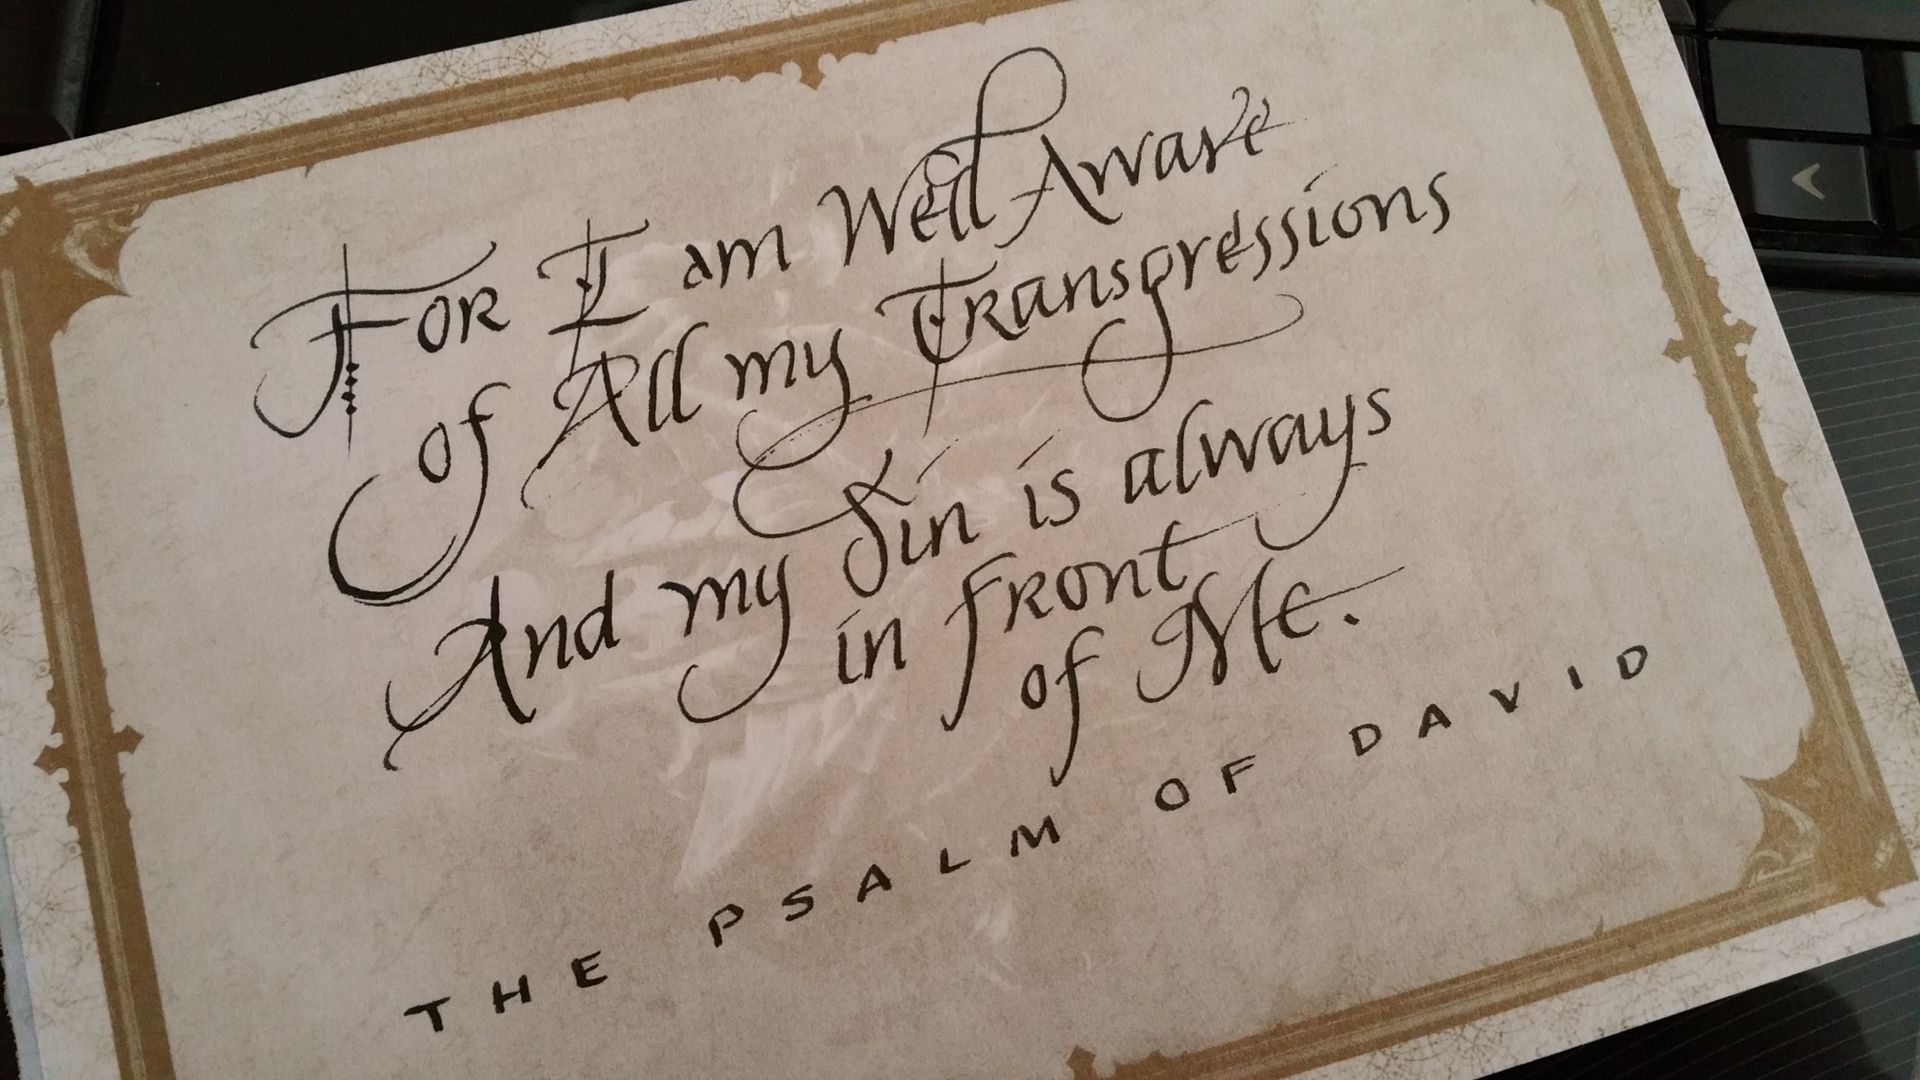 For I am Well Aware
of All my Transgressions
And my Sin is always
in front
of Me.
THE PSALM OF DAVID